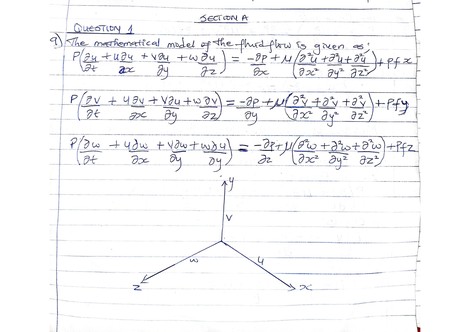 SECTION A
QUESTION 1
a) The mathematical model of the fluid flow is given as;
ρ(∂u/∂t + u∂u/∂x + v∂u/∂y + w∂u/∂z) = -∂p/∂x + μ(∂²u/∂x² + ∂²u/∂y² + ∂²u/∂z²) + ρfx
ρ(∂v/∂t + u∂v/∂x + v∂u/∂y + w∂v/∂z) = -∂p/∂y + μ(∂²v/∂x² + ∂²v/∂y² + ∂²v/∂z²) + ρfy
ρ(∂w/∂t + u∂w/∂x + v∂w/∂y + w∂u/∂y) = -∂p/∂z + μ(∂²w/∂x² + ∂²w/∂y² + ∂²w/∂z²) + ρfz
y
v
w
u
z
x